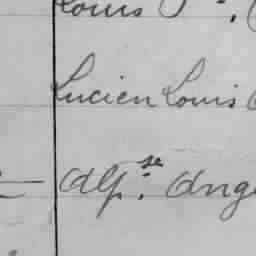 Louis
Lucien Louis
Alp.se Ange